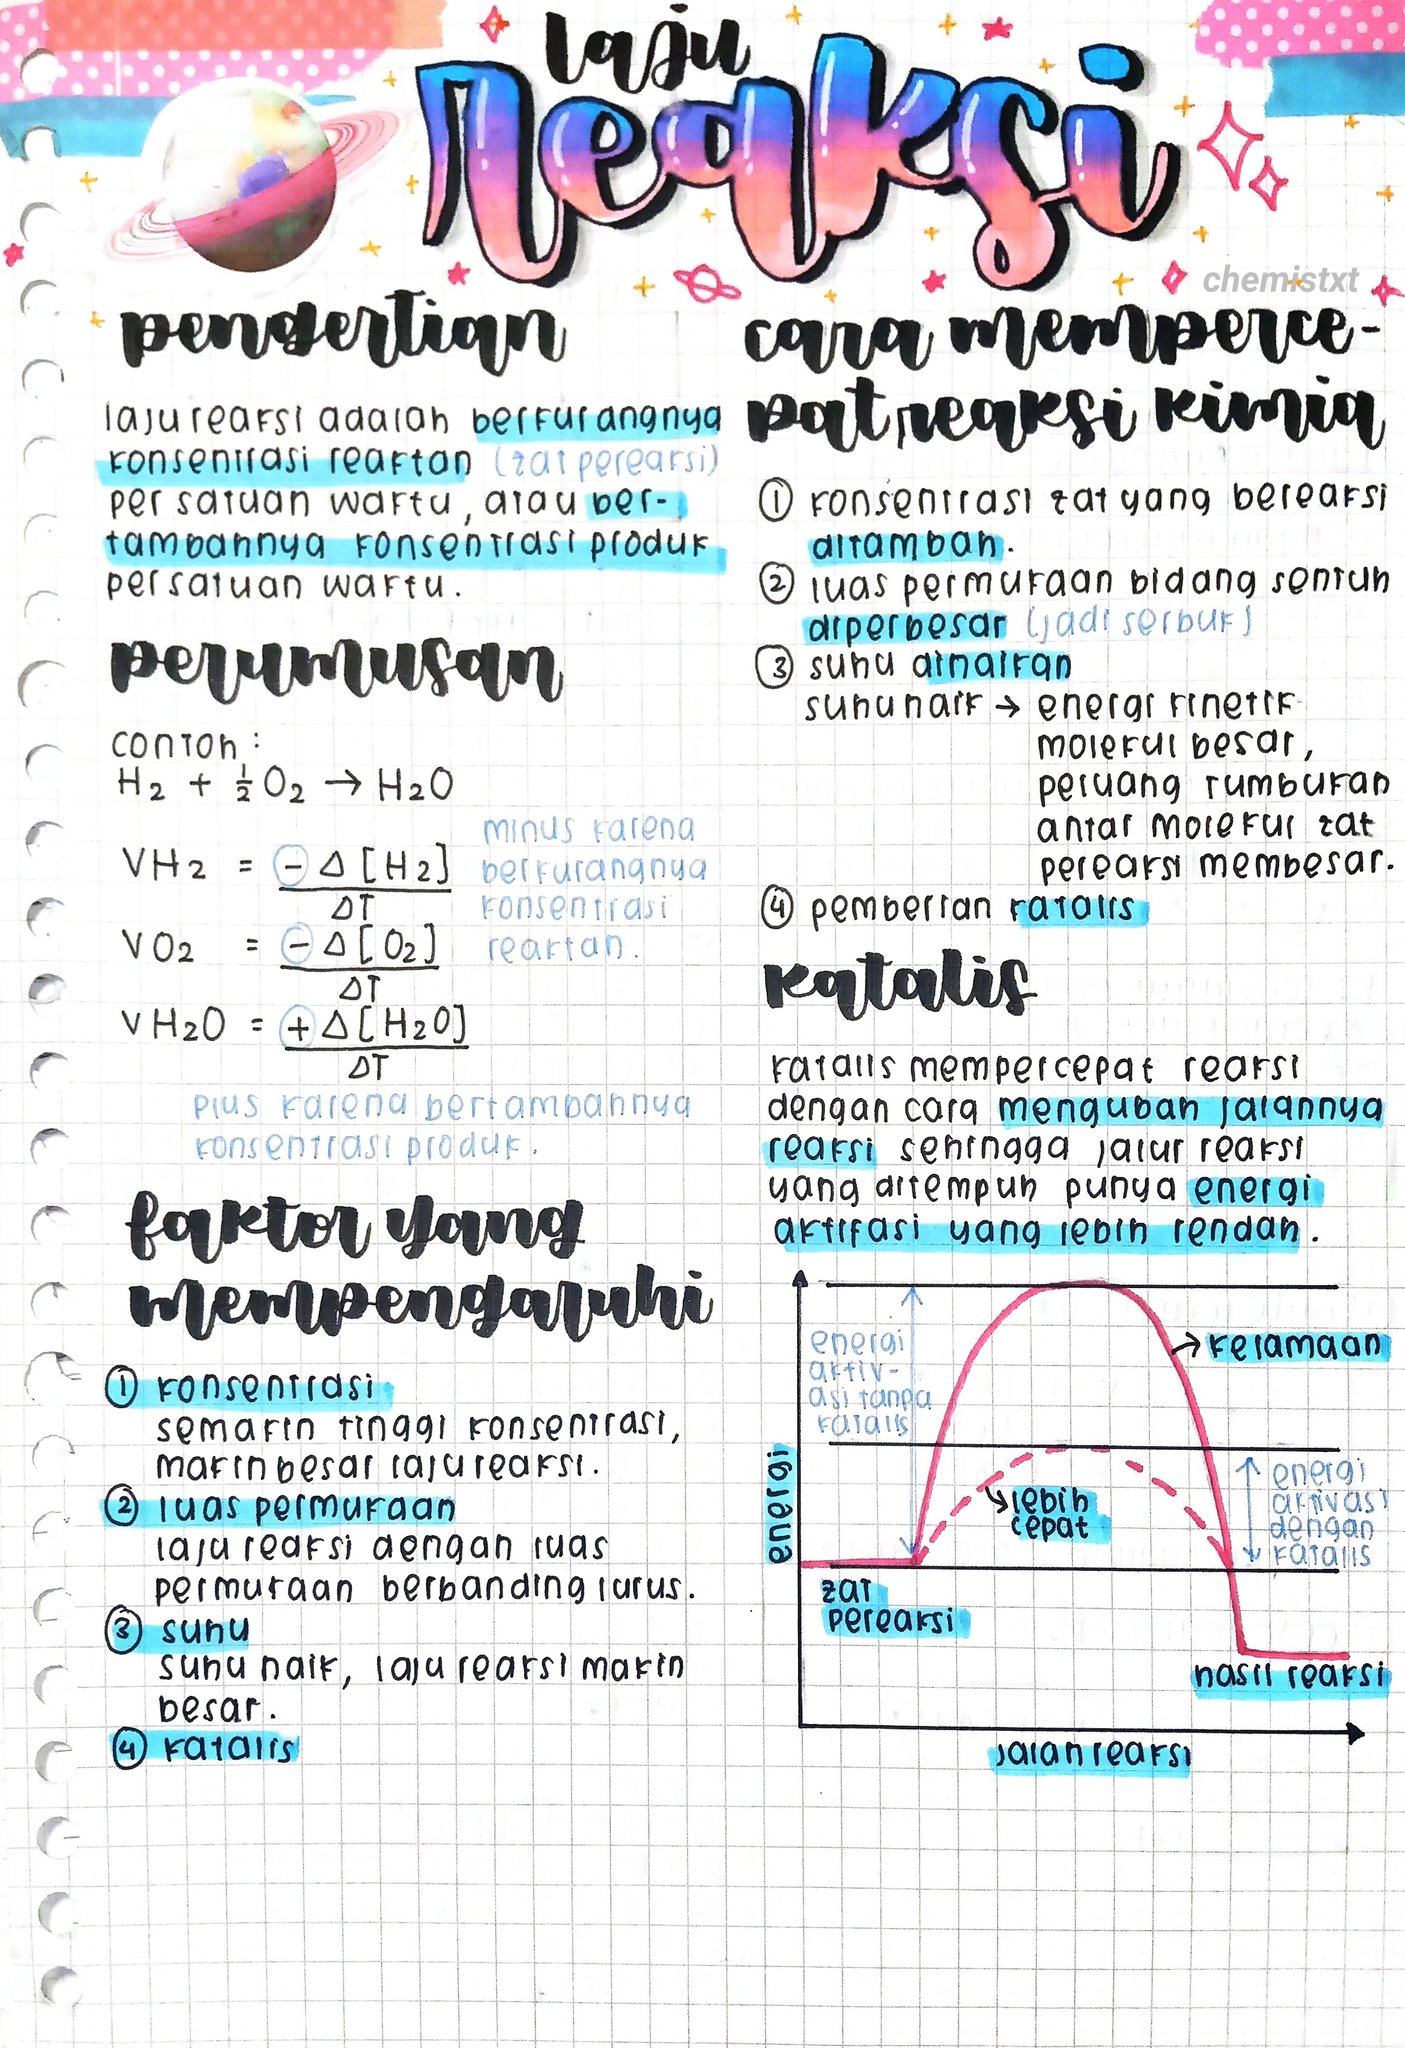 laju
Reaksi
chemistxt
pengertian
laju reaksi adalah berkurangnya
konsentrasi reaktan (zat pereaksi)
per satuan waktu, atau ber-
tambahnya konsentrasi produk
per satuan waktu.
perumusan
contoh:
H₂ + ½ O₂ → H₂O
VH₂ = - Δ [H₂]
ΔT
VO₂ = - Δ [O₂]
ΔT
VH₂O = + Δ [H₂O]
ΔT
minus karena
berkurangnya
konsentrasi
reaktan.
plus karena bertambahnya
konsentrasi produk.
faktor yang
mempengaruhi
① konsentrasi
semakin tinggi konsentrasi,
makin besar laju reaksi.
② luas permukaan
laju reaksi dengan luas
permukaan berbanding lurus.
③ suhu
suhu naik, laju reaksi makin
besar.
④ katalis
cara memperce-
pat reaksi kimia
① konsentrasi zat yang bereaksi
ditambah.
② luas permukaan bidang sentuh
diperbesar (jadi serbuk)
③ suhu dinaikan
suhu naik → energi kinetik
molekul besar,
peluang tumbukan
antar molekul zat
pereaksi membesar.
④ pemberian katalis
katalis
katalis mempercepat reaksi
dengan cara mengubah jalannya
reaksi sehingga jalur reaksi
yang ditempuh punya energi
aktifasi yang lebih rendah.
energi
aktiv-
asi tanpa
katalis
→ kelamaan
energi
lebih
cepat
energi
aktivasi
dengan
katalis
zat
pereaksi
hasil reaksi
jalan reaksi